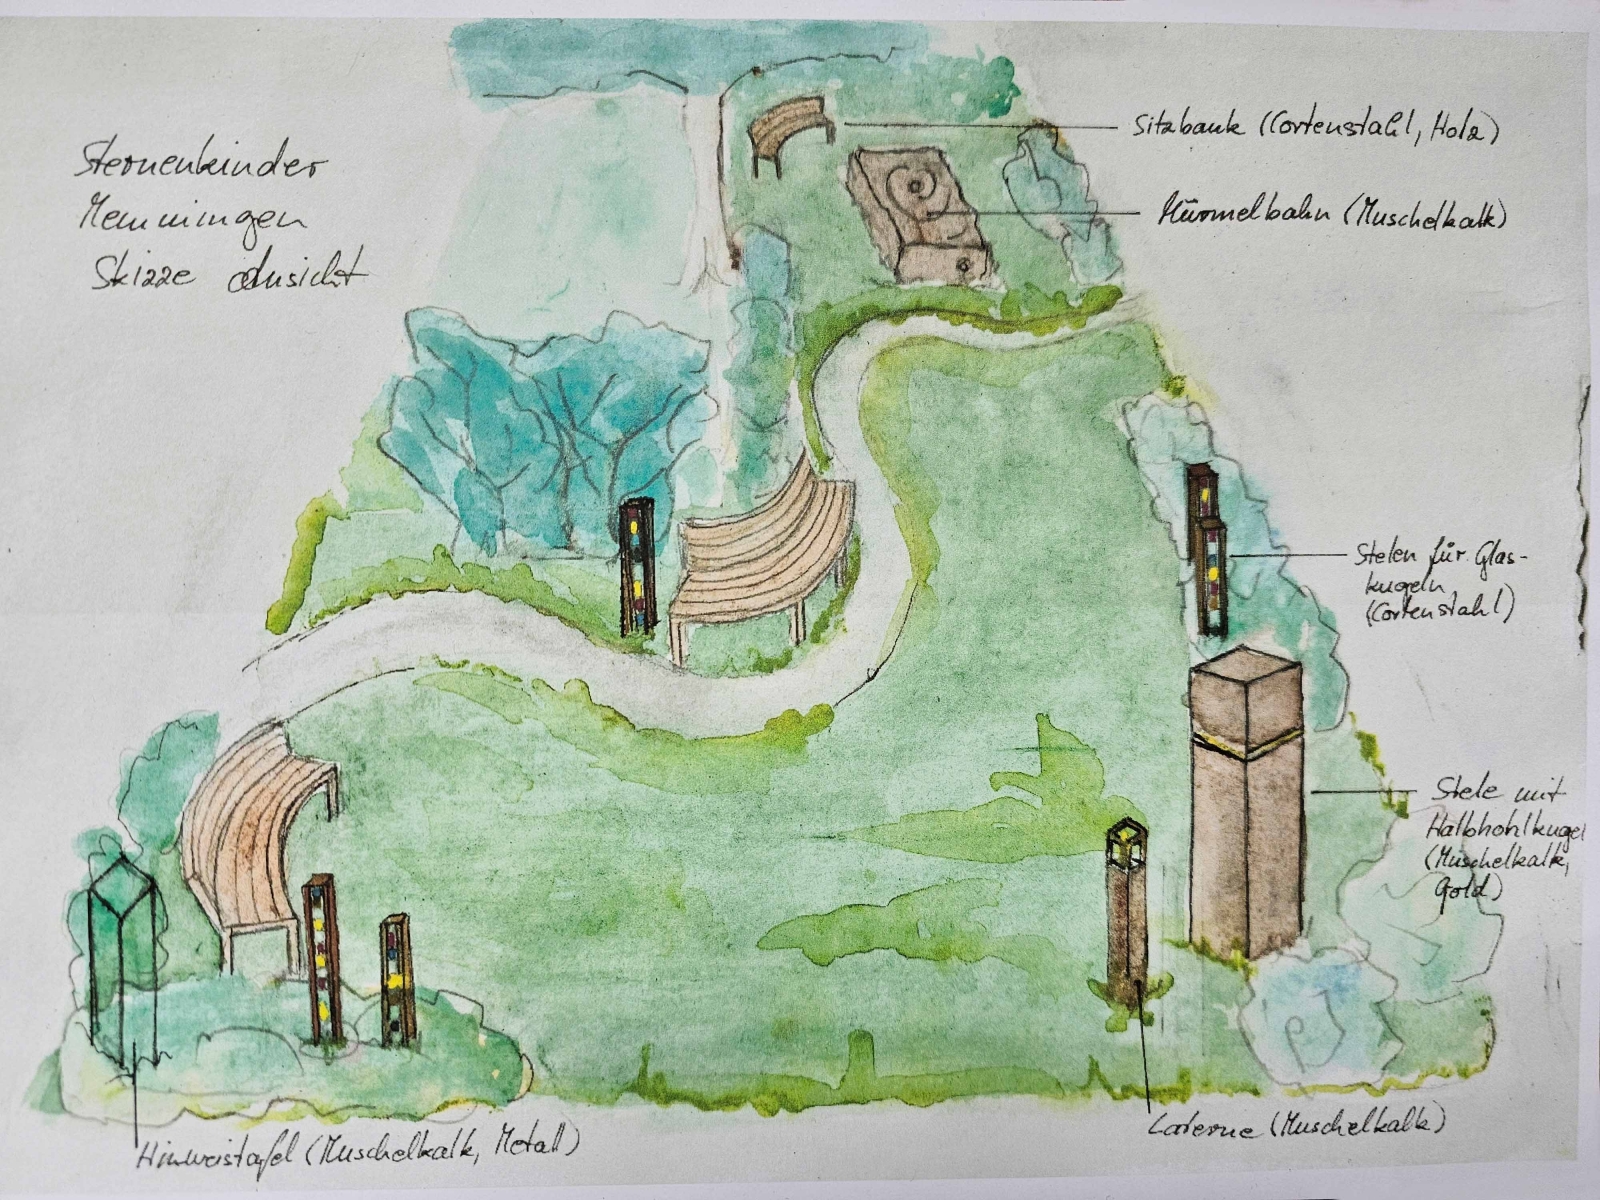 Sternenkinder
Memmingen
Skizze Ansicht
Sitzbank (Cortenstahl, Holz)
Murmelbahn (Muschelkalk)
Stelen für Glas-
kugeln
(Cortenstahl)
Stele mit
Halbhohlkugel
(Muschelkalk,
Gold)
Laterne (Muschelkalk)
Hinweistafel (Muschelkalk, Metall)